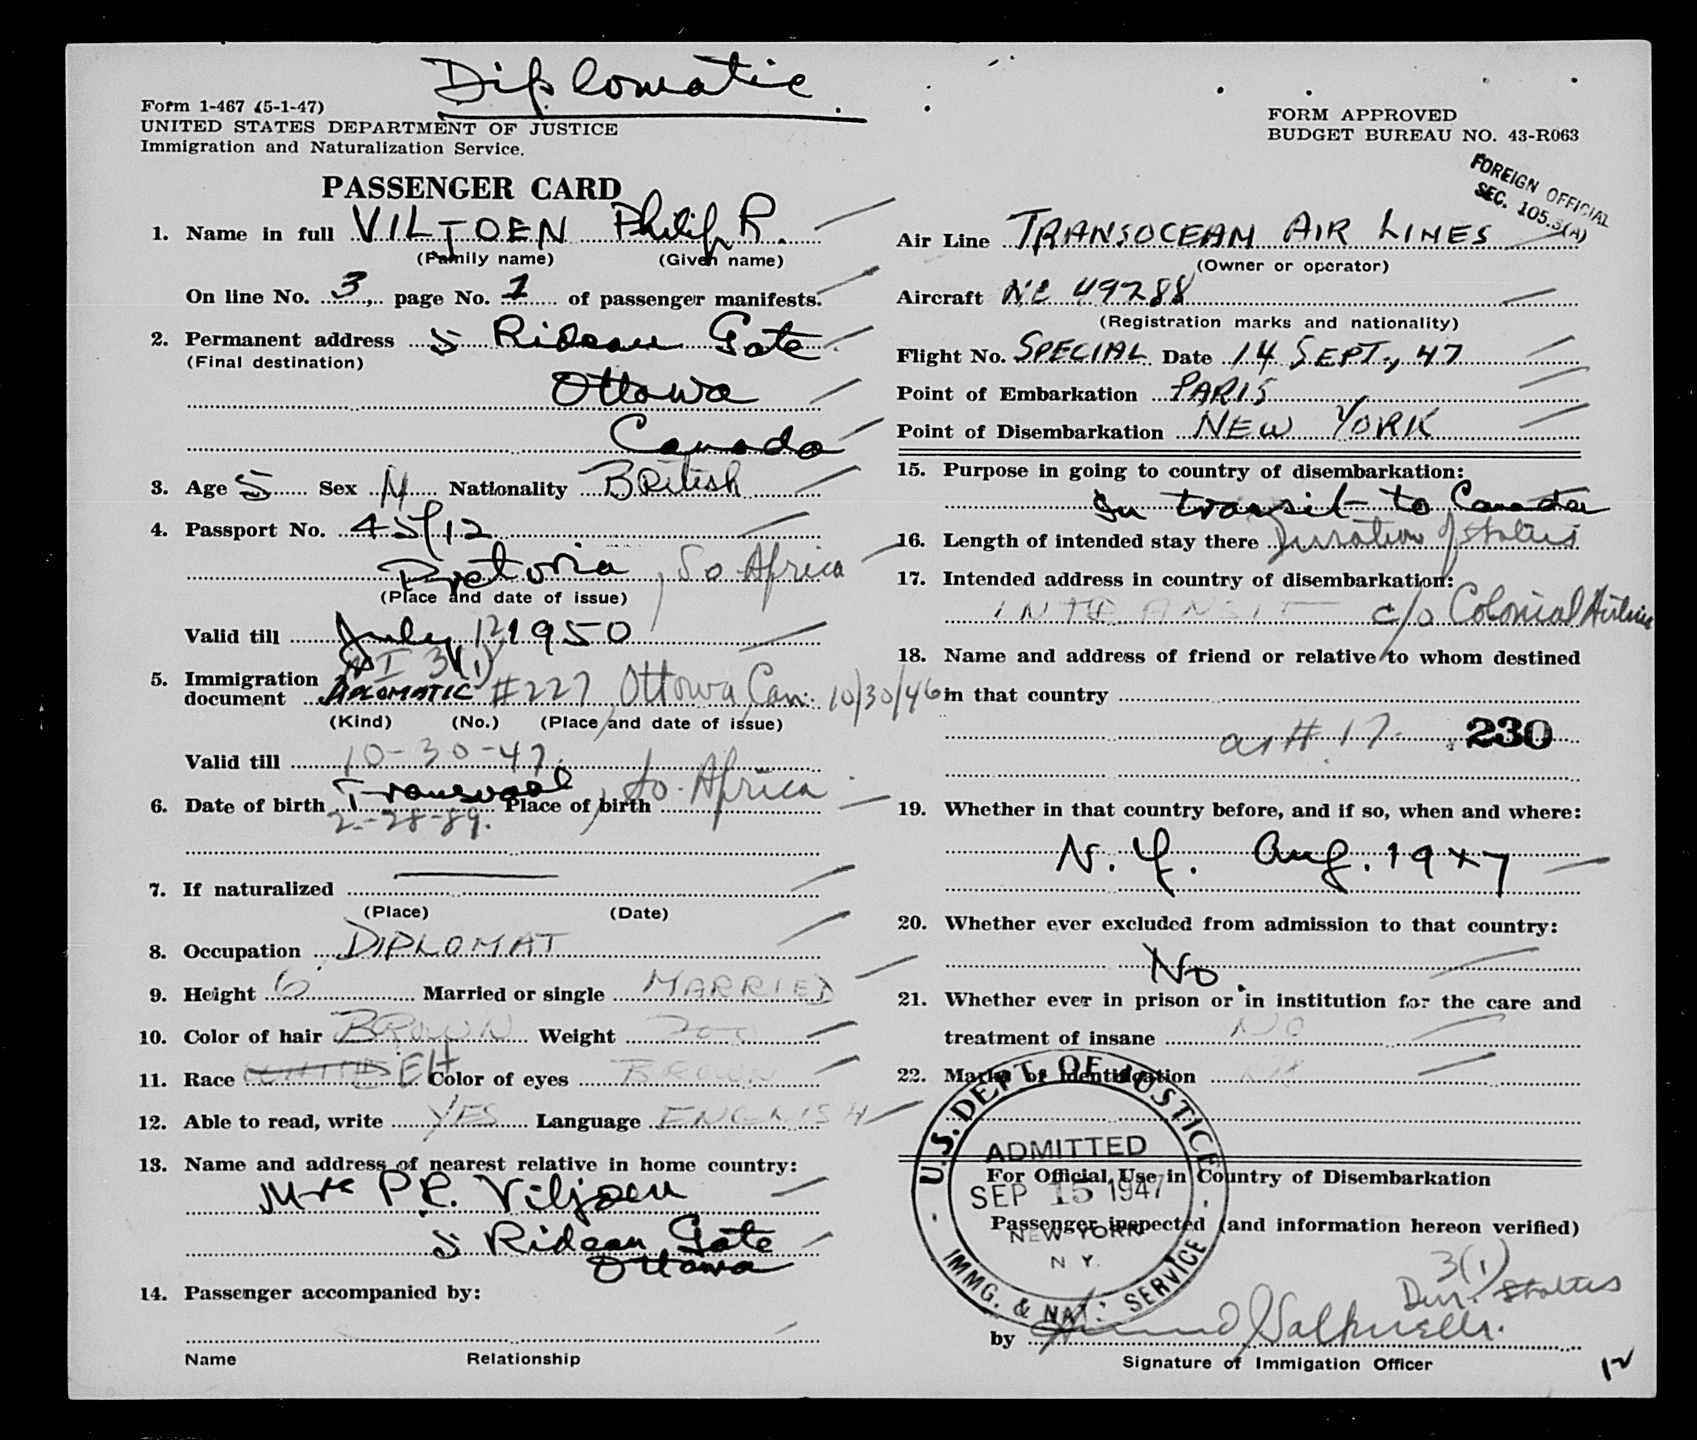 Diplomatic
Form 1-467 (5-1-47)
UNITED STATES DEPARTMENT OF JUSTICE
Immigration and Naturalization Service.
FORM APPROVED
BUDGET BUREAU NO. 43-R063
FOREIGN OFFICIAL
SEC. 105.3(A)
PASSENGER CARD
1. Name in full VILJOEN Philip R.
(Family name) (Given name)
On line No. 3, page No. 1 of passenger manifests.
2. Permanent address 5 Rideau Gate
(Final destination)
Ottowa
Canada
3. Age 5 Sex M Nationality British
4. Passport No. 45/12
Pretoria, So Africa
(Place and date of issue)
Valid till July 12 1950
3(1)
5. Immigration
document DIPLOMATIC #227, Ottowa, Can. 10/30/46
(Kind) (No.) (Place and date of issue)
Valid till 10-30-47
Transvaal, So. Africa
6. Date of birth Place of birth
2-28-89.
7. If naturalized
(Place) (Date)
8. Occupation DIPLOMAT
9. Height 6' Married or single MARRIED
10. Color of hair BROWN Weight 200
11. Race Color of eyes BROWN
12. Able to read, write YES Language ENGLISH
13. Name and address of nearest relative in home country:
Mrs P.R. Viljoen
5 Rideau Gate
Ottawa
14. Passenger accompanied by:
Name Relationship
Air Line TRANSOCEAN AIR LINES
(Owner or operator)
Aircraft NC 49288
(Registration marks and nationality)
Flight No. SPECIAL Date 14 SEPT., 47
Point of Embarkation PARIS
Point of Disembarkation NEW YORK
15. Purpose in going to country of disembarkation:
In transit to Canada
16. Length of intended stay there Duration of status
17. Intended address in country of disembarkation:
IN TRANSIT c/o Colonial Airlines
18. Name and address of friend or relative to whom destined
in that country
as # 17. 230
19. Whether in that country before, and if so, when and where:
N.Y. Aug. 1947
20. Whether ever excluded from admission to that country:
No.
21. Whether ever in prison or in institution for the care and
treatment of insane NO
22. Marks of identification
U.S. DEPT OF JUSTICE
IMMG. & NAT. SERVICE
ADMITTED
SEP 15 1947
NEW YORK
N Y.
For Official Use in Country of Disembarkation
Passenger inspected (and information hereon verified)
3(1)
Dur. Status
by
Signature of Immigation Officer